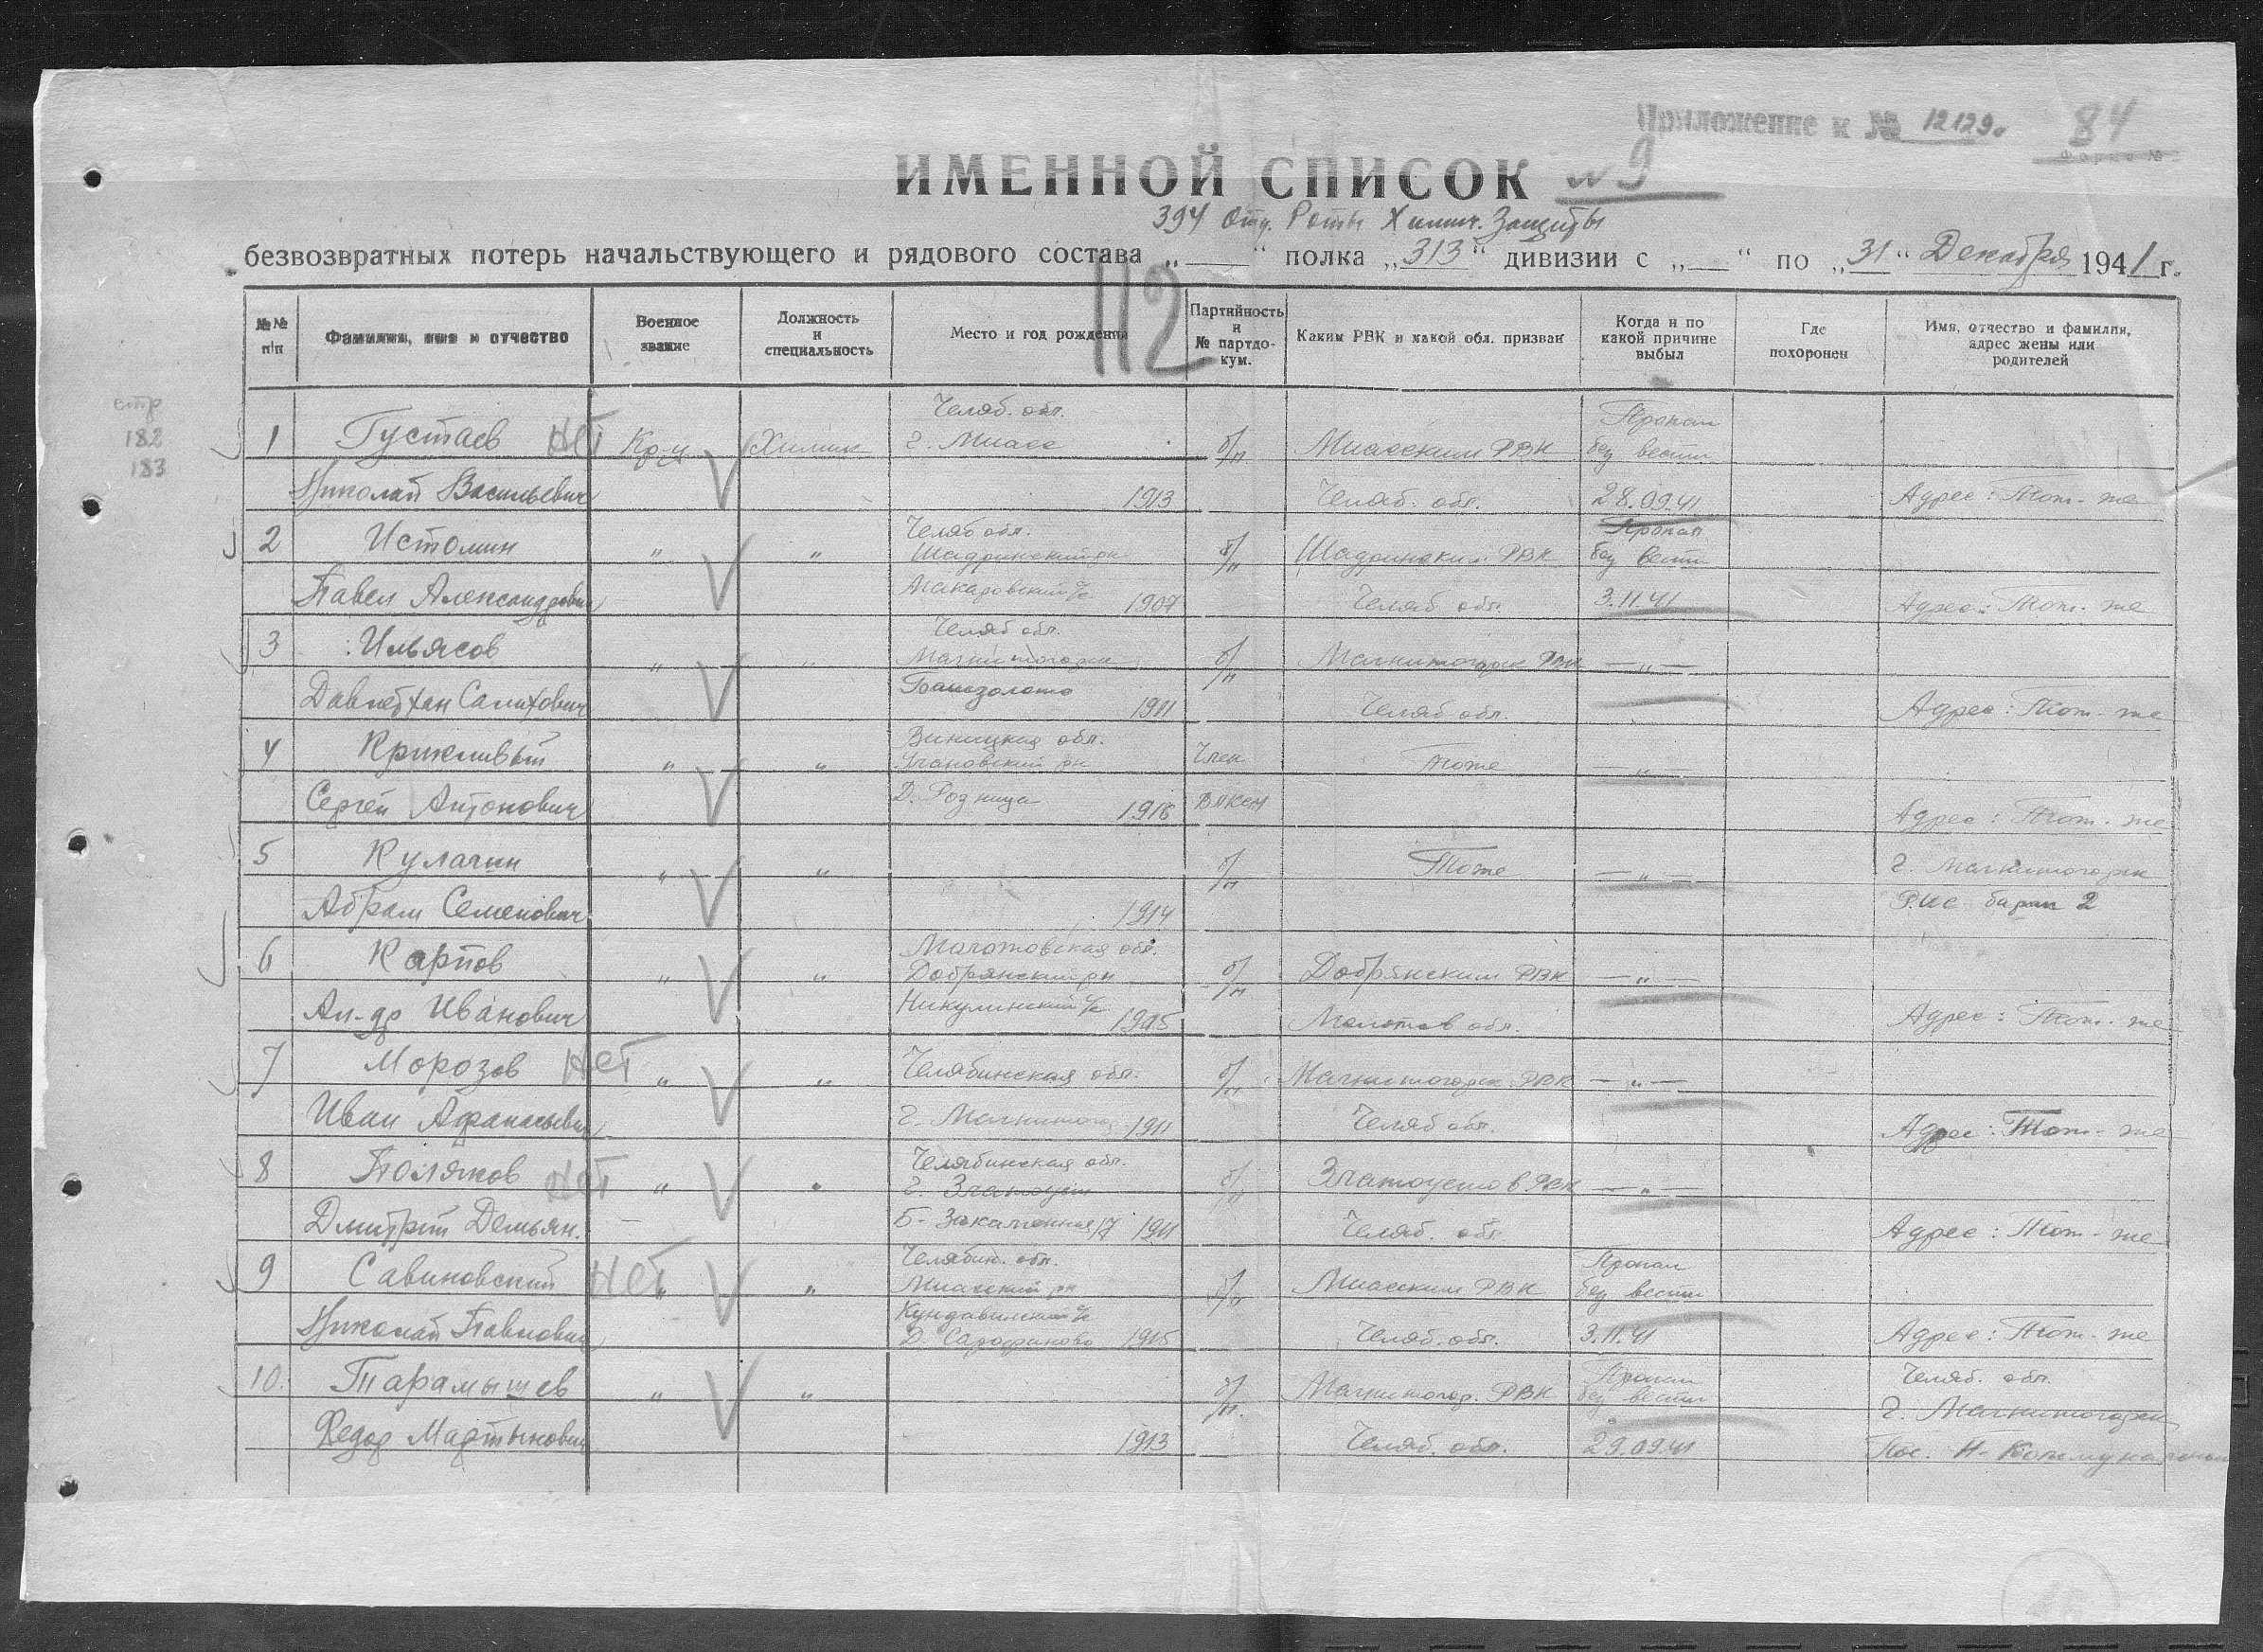 Приложение к № 12129с
84
Форма №
ИМЕННОЙ СПИСОК № 9
394 Отд. Роты Химич. Защиты
безвозвратных потерь начальствующего и рядового состава „ “ полка „313“ дивизии с „ “ по „31“ Декабря 1941 г.
112
№№ п/п
Фамилия, имя и отчество
Военное звание
Должность и специальность
Место и год рождения
Партийность и № партдокум.
Каким РВК и какой обл. призван
Когда и по какой причине выбыл
Где похоронен
Имя, отчество и фамилия, адрес жены или родителей
стр
182
183
1 Густаев Нет Кр-ц Химик Челяб. обл. г. Миасс б/п Миасским РВК Пропал без вести
Николай Васильевич 1913 Челяб. обл. 28.09.41 Адрес: Тот-же
2 Истомин " " Челяб обл. Шадринский рн б/п Шадринским РВК Пропал без вести
Павел Александрович Макаровский с/с 1907 Челяб. обл. 3.11.41 Адрес: Тот-же
3 Ильясов " " Челяб обл. Магнитогорск б/п Магнитогорск РВК — " —
Давлетхан Салихович 1911 Челяб обл. Адрес: Тот-же
4 Крикливый " " Виницкая обл. Улановский рн Член Тоже — " —
Сергей Антонович Д. Родница 1918 ВЛКСМ Адрес: Тот-же
5 Кулагин " " б/п Тоже — " — г. Магнитогорск
Абрам Семенович 1914 барак 2
6 Карпов " " Молотовская обл. Добрянский рн б/п Добрянским РВК — " —
Ал-др Иванович Никулинский с/с 1905 Молотов обл. Адрес: Тот-же
7 Морозов Нет " " Челябинская обл. б/п Магнитогорск. РВК — " —
Иван Афанасьевич г. Магнитогор 1911 Челяб обл. Адрес: Тот-же
8 Поляков Нет " " Челябинская обл. г. Златоуст б/п Златоустов РВК — " —
Дмитрий Демьян. Б-Закаменная 17 1911 Челяб. обл Адрес: Тот-же
9 Савиновский Нет " " Челябин. обл. Миасский рн б/п Миасским РВК Пропал без вести
Николай Павлович Кундавинский с/с Д. Сарафаново 1915 Челяб. обл. 3.11.41 Адрес: Тот-же
10. Тарамышев " " б/п. Магнитогор. РВК Пропал без вести Челяб. обл. г. Магнитогорск
Федор Мартынович 1913 Челяб. обл. 29.09.41 Пос. Н-